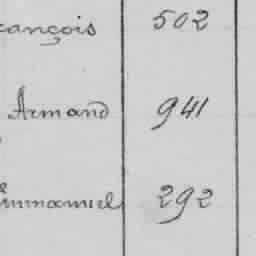 rançois 502
Armand 941
Emmanuel 292